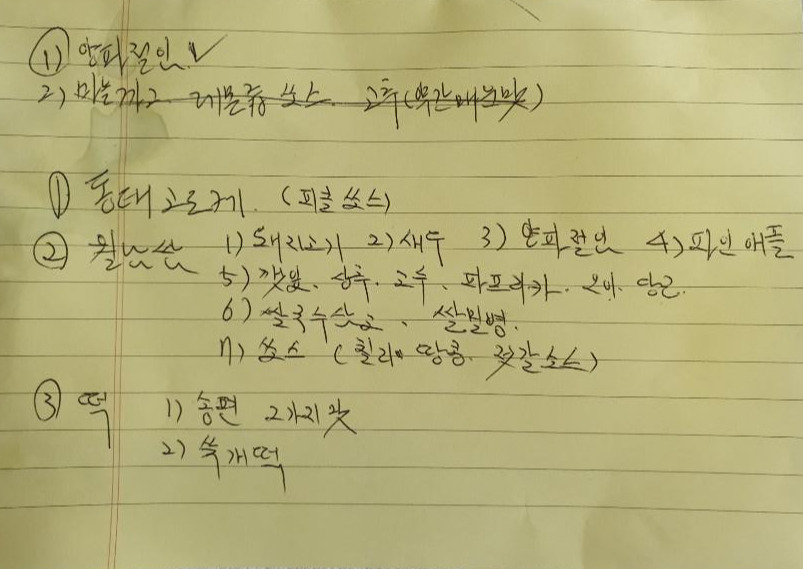 ① 양파절인 ✓
2) 마늘까고 레몬즙 쏘스 고추(약간매운맛)
① 동태고로케. (피클쏘스)
② 월남쌈 1) 돼지고기 2) 새우 3) 양파절인 4) 파인애플
5) 깻잎. 상추. 고수. 파프리카. 오이. 당근.
6) 쌀국수 , 쌀밀병.
7) 쏘스 (칠리. 땅콩. 젓갈소스)
③ 떡 1) 송편 2가지맛
2) 쑥개떡